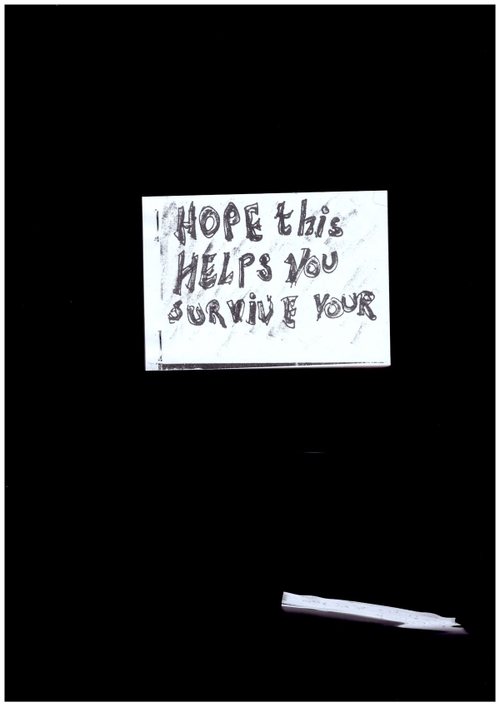 HOPE this
HELPS YOU
SURViVE YOUR